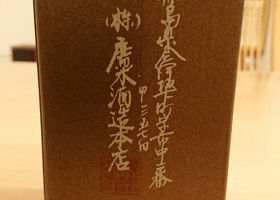 島県会津坂下町字市中二番
甲三五七四
(株)廣木酒造本店